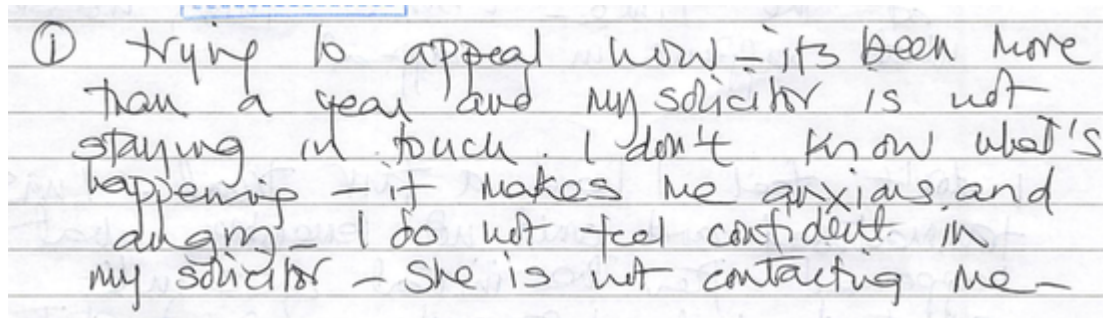 ① trying to appeal now – its been more
than a year and my solicitor is not
staying in touch. I don't know what's
happening – it makes me anxious and
angry – I do not feel confident in
my solicitor – she is not contacting me –